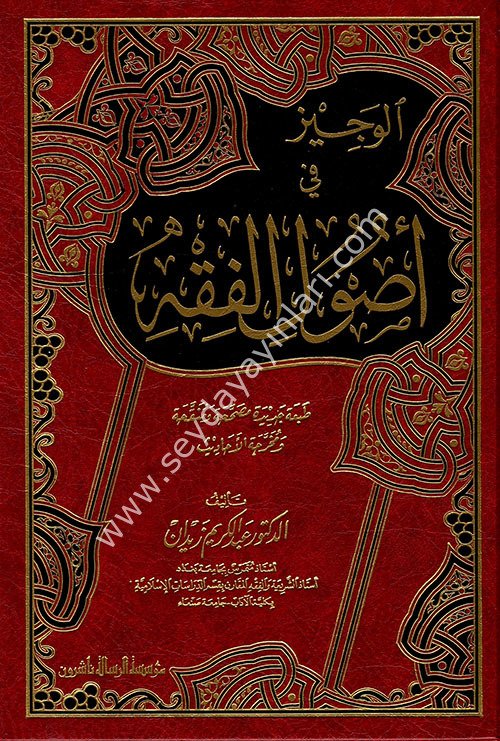 الوجيز
في
أصول الفقه
طبعة جديدة مصححة ومنقحة
ومخرجة الأحاديث
تأليف
الدكتور عبد الكريم زيدان
أستاذ متمرس بجامعة بغداد
أستاذ الشريعة والفقه المقارن بقسم الدراسات الإسلامية
بكلية الآداب - جامعة صنعاء
مؤسسة الرسالة ناشرون
www.seydayayinlari.com